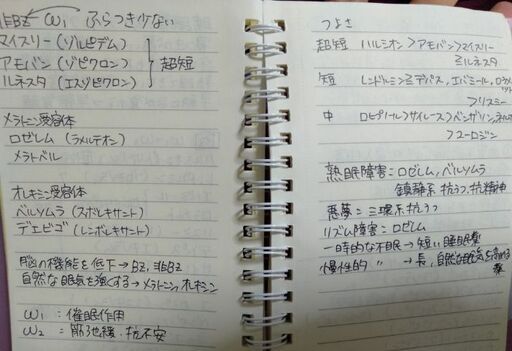 非BZ ω₁ ふらつき少ない
マイスリー(ゾルピデム)
アモバン(ゾピクロン) 超短
ルネスタ(エスゾピクロン)
メラトニン受容体
ロゼレム(ラメルテオン)
メラトベル
オレキシン受容体
ベルソムラ(スボレキサント)
デエビゴ(レンボレキサント)
脳の機能を低下→BZ, 非BZ
自然な眠気を強くする→メラトニン,オレキシン
ω₁ : 催眠作用
ω₂ = 筋弛緩・抗不安
つよさ
超短 ハルシオン>アモバン>マイスリー
≧ルネスタ
短 レンドルミン≧デパス, エバミール,
>リスミー
中 ロヒプノール>サイレース>ベンザリン,
>ユーロジン
熟眠障害:ロゼレム,ベルソムラ
鎮静系抗うつ,抗精神
悪夢:三環系抗うつ
リズム障害:ロゼレム
一時的な不眠→短い睡眠薬
慢性的 〃 →長,自然な眠気を高める
薬